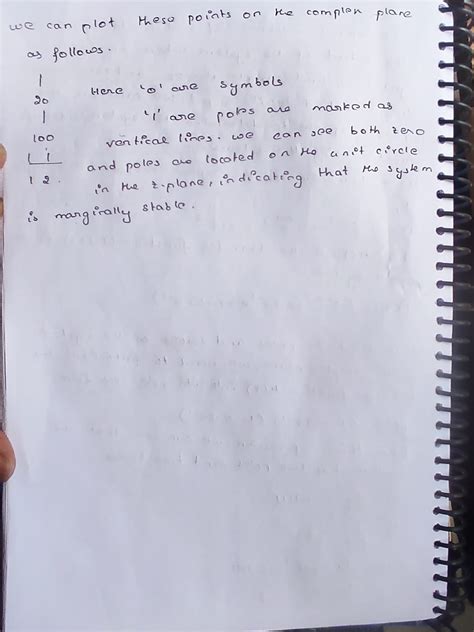 we can plot these points on the complex plane
as follows.
1
20 Here 'o' are symbols
1 '1' are poles are marked as
100 ventical lines. we can see both zero
1 1 and poles are located on the unit circle
1 2. in the z-plane, indicating that the system
is marginally stable.